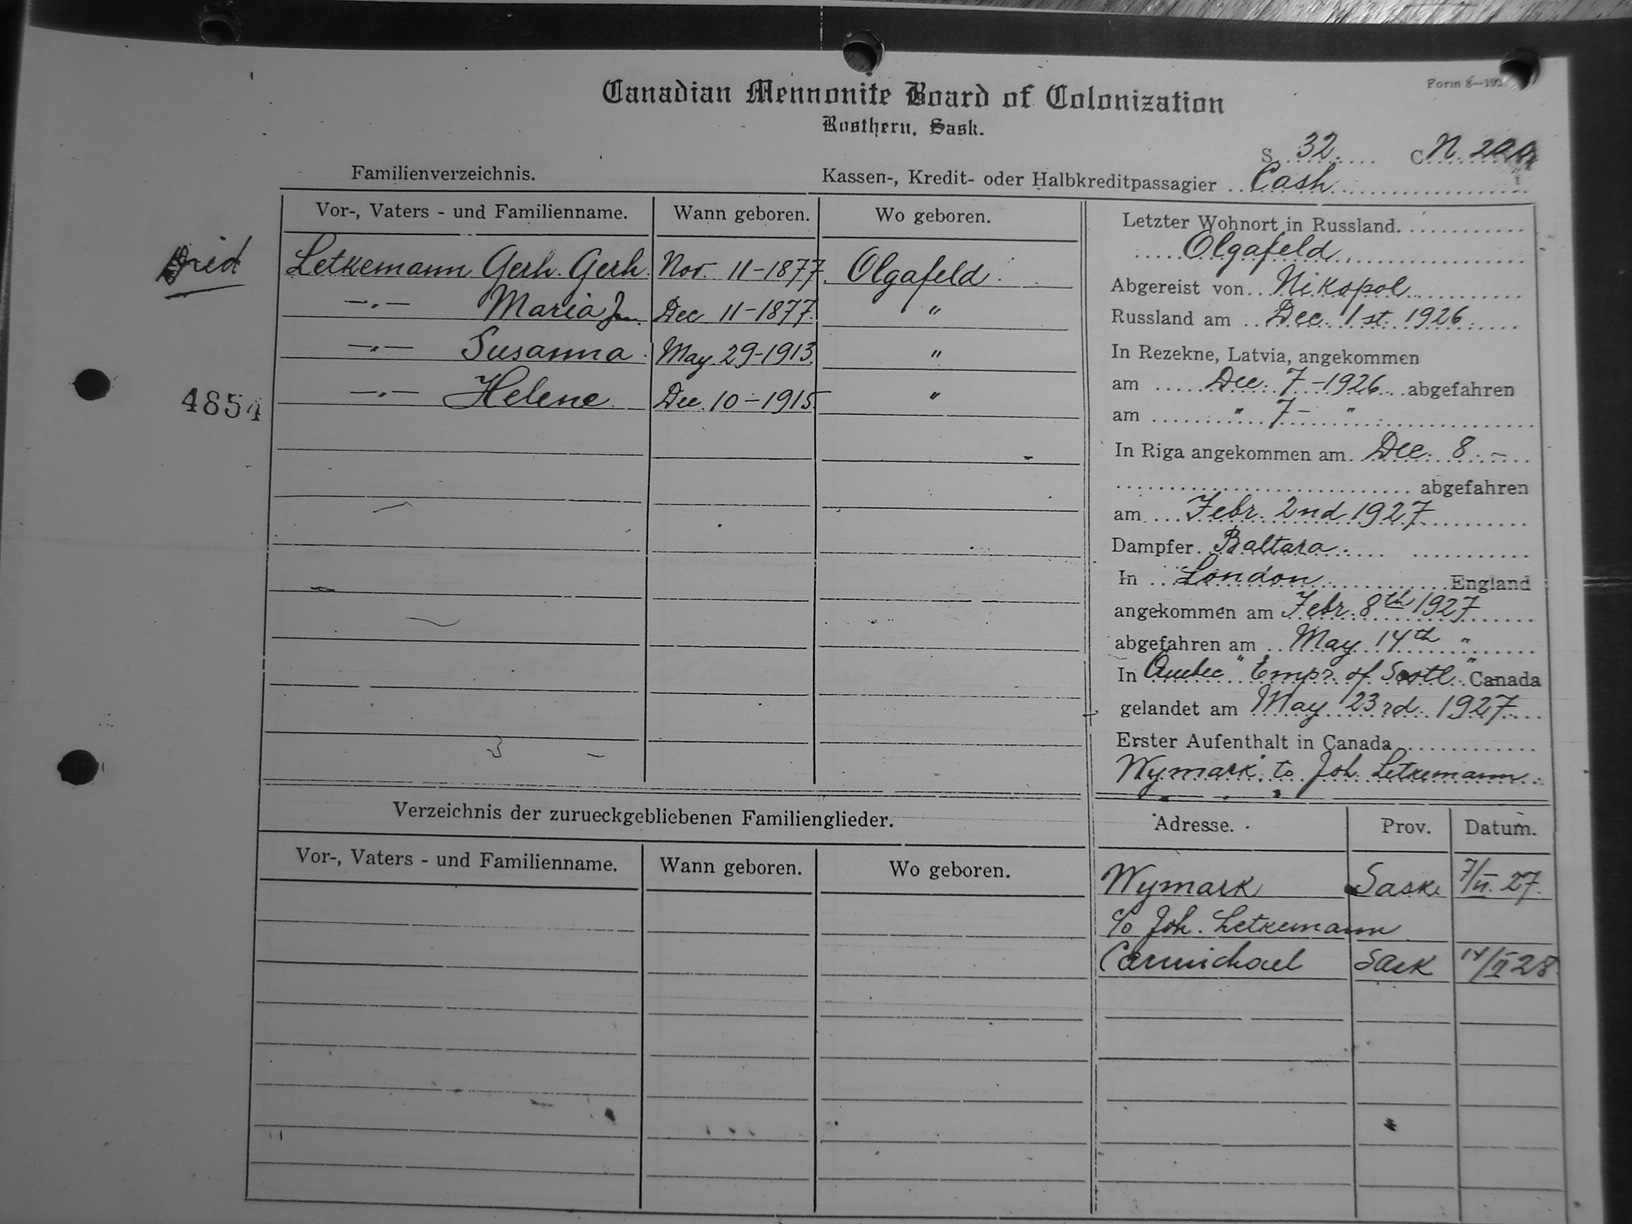 Form 8—192
Canadian Mennonite Board of Colonization
Rosthern, Sask.
S. 32. C. N.
Familienverzeichnis. Kassen-, Kredit- oder Halbkreditpassagier Cash
Vor-, Vaters - und Familienname. Wann geboren. Wo geboren.
Died Letkemann Gerh. Gerh. Nov. 11-1877. Olgafeld
-.- Maria Dec 11-1877. "
-.- Susanna May 29-1913. "
4854 -.- Helene Dec. 10-1915 "
Letzter Wohnort in Russland.
Olgafeld
Abgereist von Nikopol
Russland am Dec. 1st. 1926
In Rezekne, Latvia, angekommen
am Dec. 7-1926 abgefahren
am " 7- "
In Riga angekommen am. Dec. 8.-
abgefahren
am Febr. 2nd 1927
Dampfer. Baltara
In London England
angekommen am Febr. 8th 1927
abgefahren am May 14th "
In Quebec "Empr. of Scotl." Canada
gelandet am May 23rd. 1927
Erster Aufenthalt in Canada
Wymark. to Joh. Letkemann
Verzeichnis der zurueckgebliebenen Familienglieder.
Vor-, Vaters - und Familienname. Wann geboren. Wo geboren.
Adresse. Prov. Datum.
Wymark Sask. 7/II. 27.
c/o Joh. Letkemann
Carmichael Sask 14/II 28